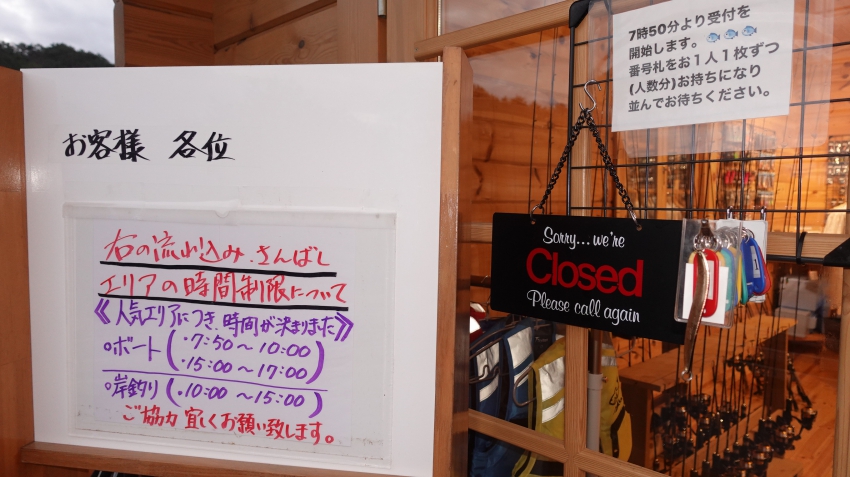 お客様 各位
右の流れ込み・さんばし
エリアの時間制限について
《人気エリアにつき、時間が決まりました》
○ボート(・7:50〜10:00
・15:00〜17:00)
○岸釣り(・10:00〜15:00)
ご協力 宜しくお願い致します。
7時50分より受付を
開始します。🐟🐟🐟
番号札をお1人1枚ずつ
(人数分)お持ちになり
並んでお待ちください。
Sorry...we're
Closed
Please call again